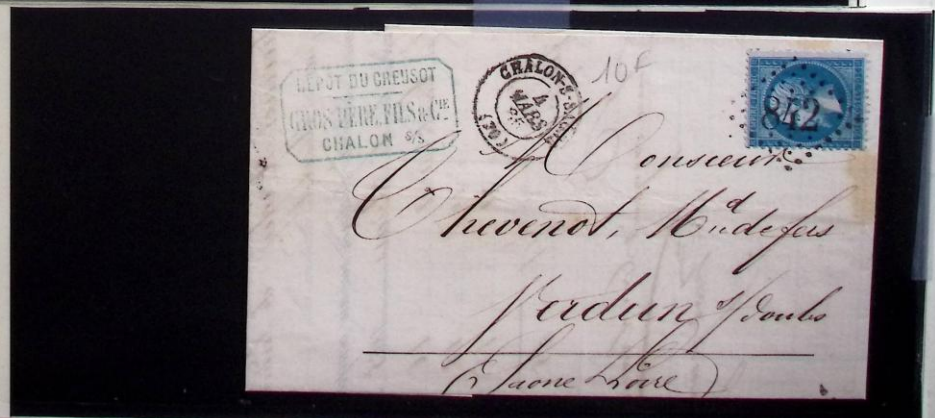 DEPOT DU CREUSOT
GROS PÈRE, FILS & Cie
CHALON S/S
CHALON-S-SAONE
4
MARS
(70)
10F
842
Monsieur
Thevenot, Md de fers
Verdun s/ doubs
Saone Loire